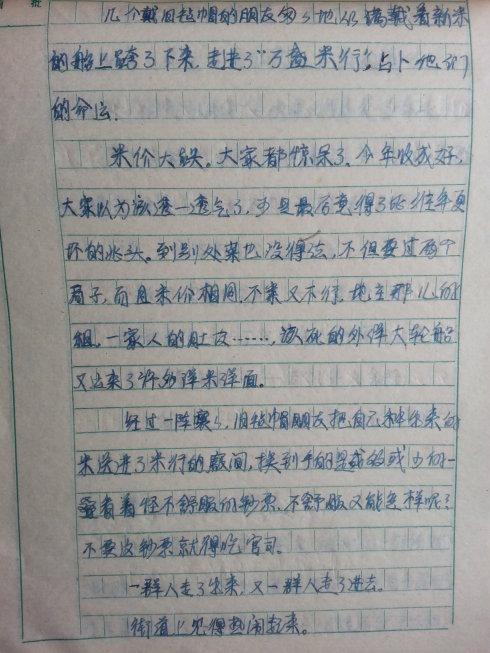 几个戴旧毡帽的朋友匆匆地从满载着新米
的船上跨了下来,走进了“万盛米行”,占卜他们
的命运。
米价大跌。大家都惊呆了。今年收成好,
大家以为该透一透气了,可是最后竟得了比往年更
坏的兆头。到别处粜也没得法,不但要过两个
局子,而且米价相同,不粜又不行,地主那儿的
租,一家人的肚皮……,该死的外洋大轮船
又运来了许多洋米洋面。
经过一阵 旧毡帽朋友把自己种出来的
米送进了米行的廒间,换到手的是或多或少的一
叠看着怪不舒服的钞票。不舒服又能怎样呢?
不要这钞票就得吃官司。
一群人走了出来,又一群人走了进去。
街道上见得热闹起来。